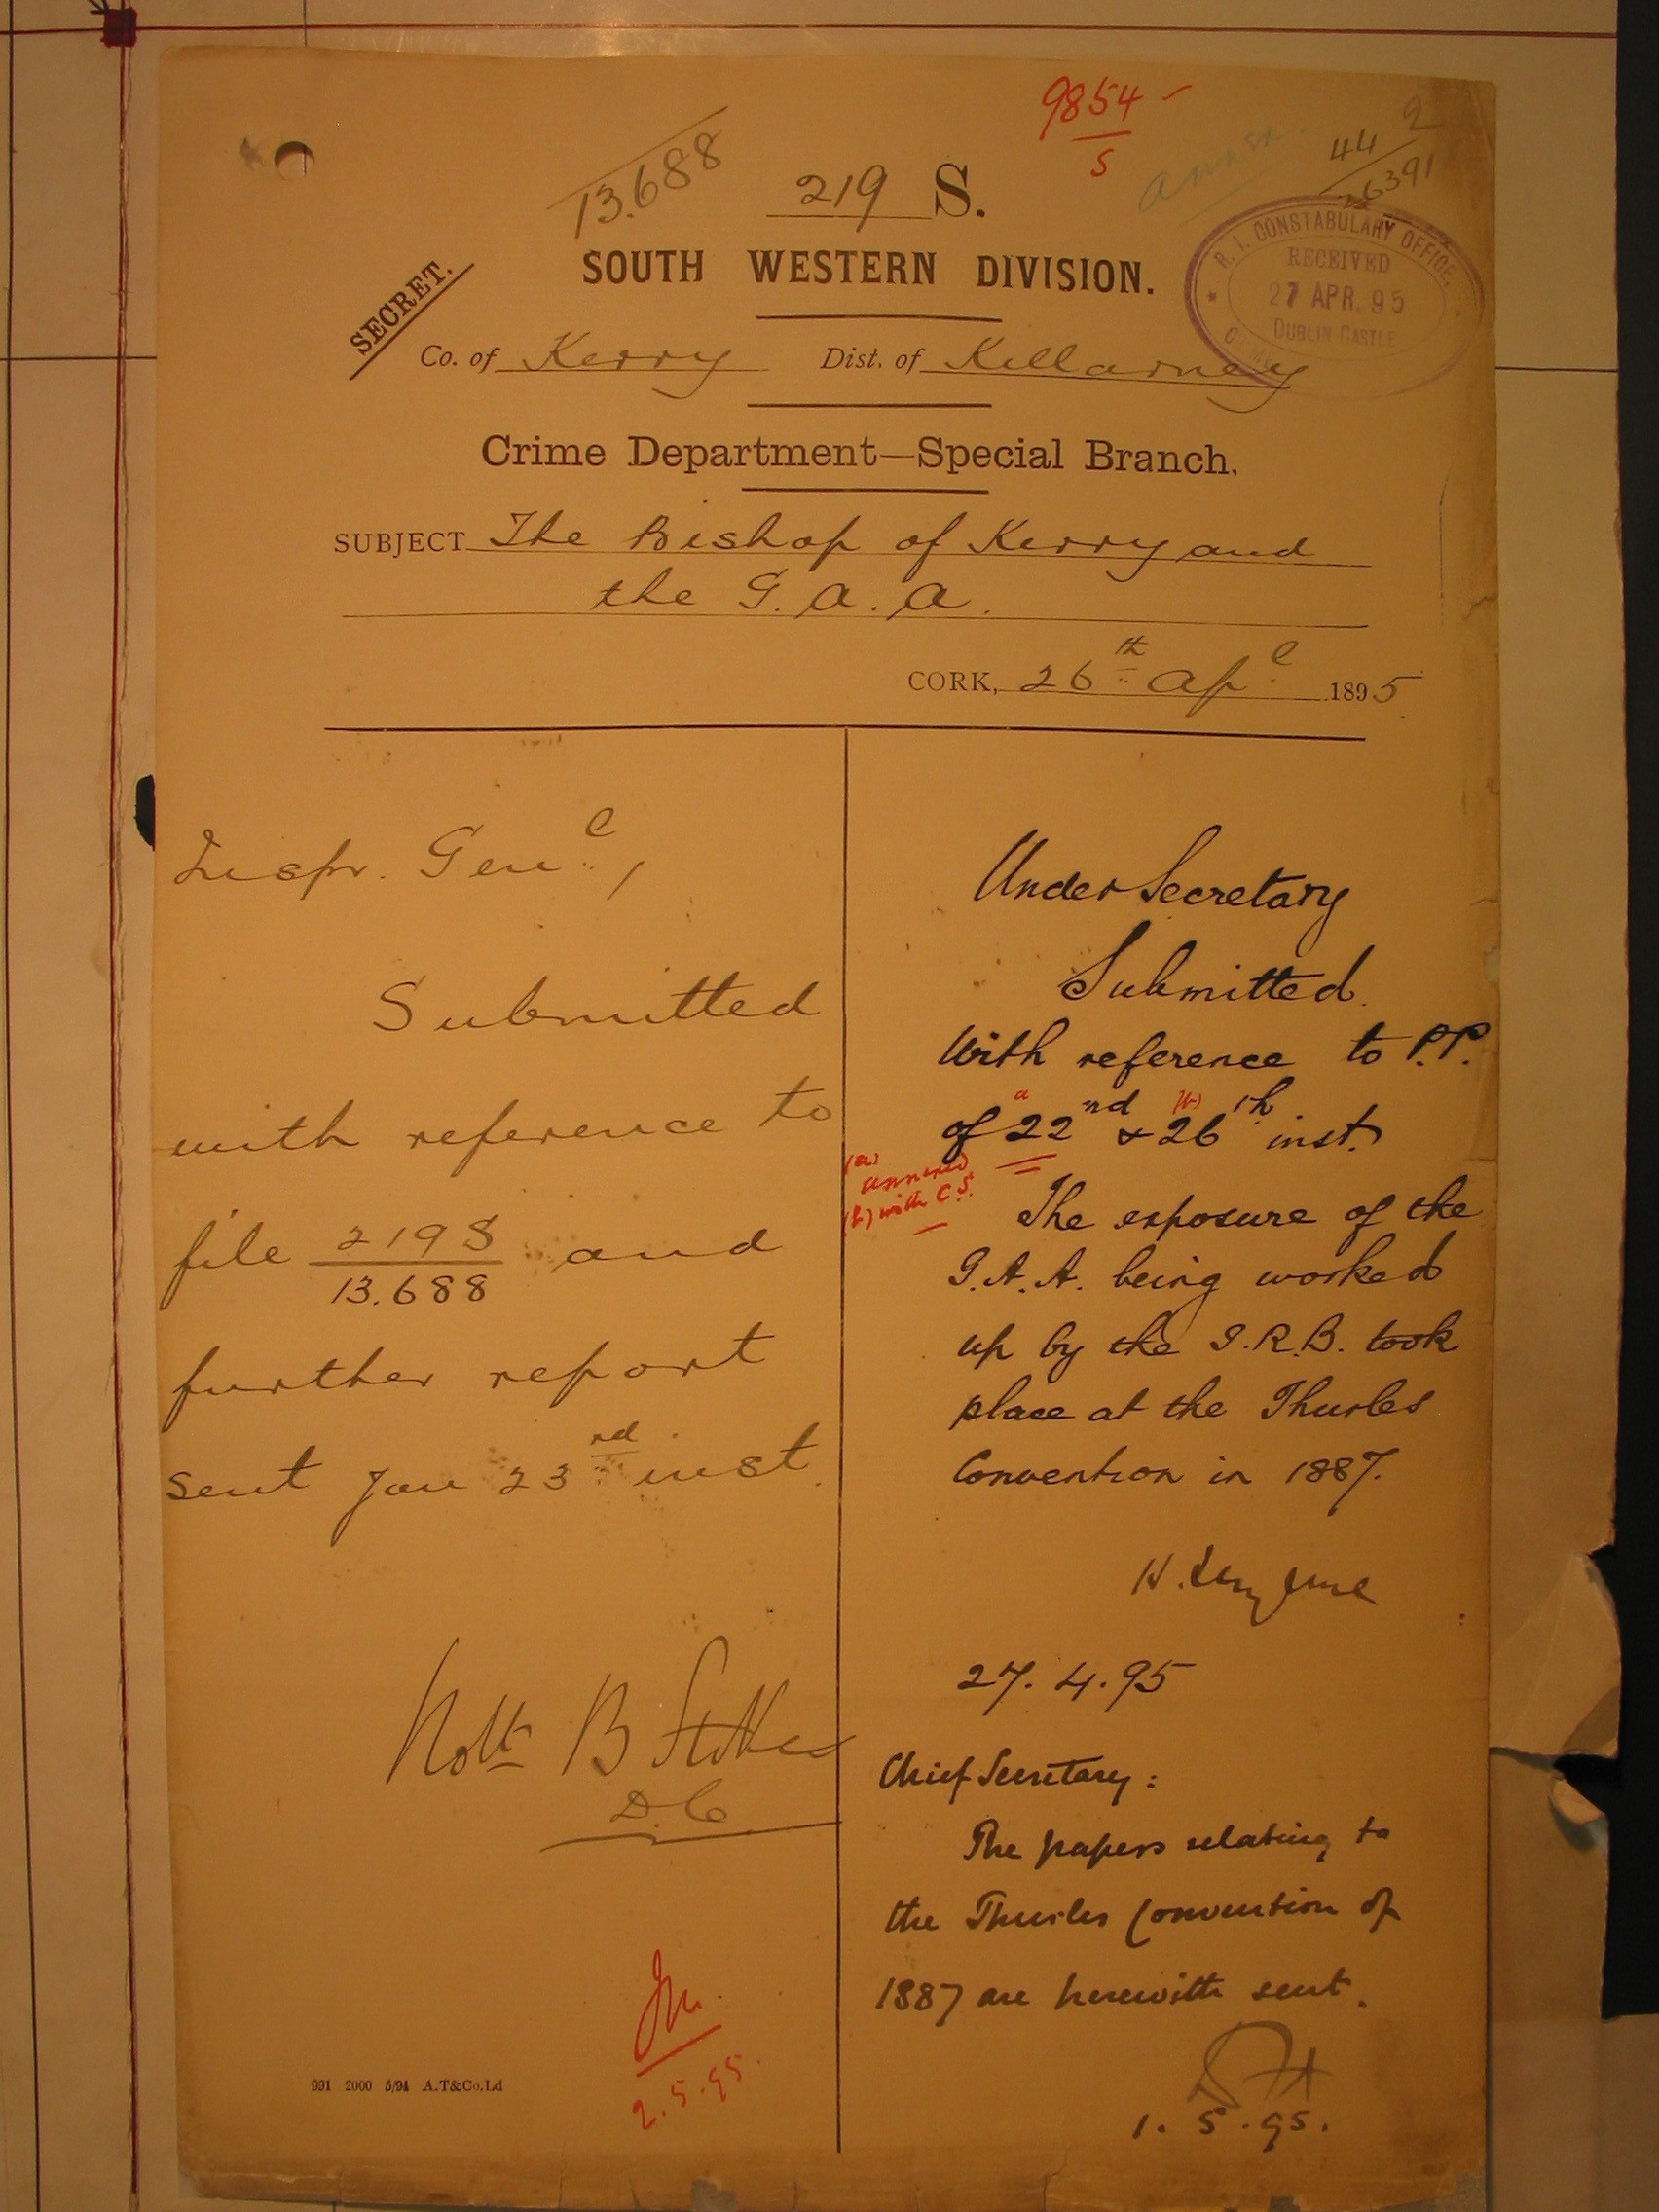 9854
5
13.688
219 S.
annex.
44 2
26391
R. I. CONSTABULARY OFFICE.
RECEIVED
27 APR. 95
DUBLIN CASTLE
SECRET.
SOUTH WESTERN DIVISION.
Co. of Kerry Dist. of Killarney
Crime Department—Special Branch.
SUBJECT The Bishop of Kerry and
the G.A.A.
CORK, 26th Apl 1895
Inspr. Genl,
Submitted
with reference to
file 219S/13.688 and
further report
sent you 23rd inst.
D.C.
Under Secretary
Submitted.
With reference to P.P.
of a 22nd & (b) 26th inst.
(a) annexed
(b) with C.S.
The exposure of the
G.A.A. being worked
up by the I.R.B. took
place at the Thurles
Convention in 1887.
27.4.95
Chief Secretary:
The papers relating to
the Thurles Convention of
1887 are herewith sent.
1.5.95.
JM.
2.5.95.
991 2000 5/94 A.T&Co.Ld